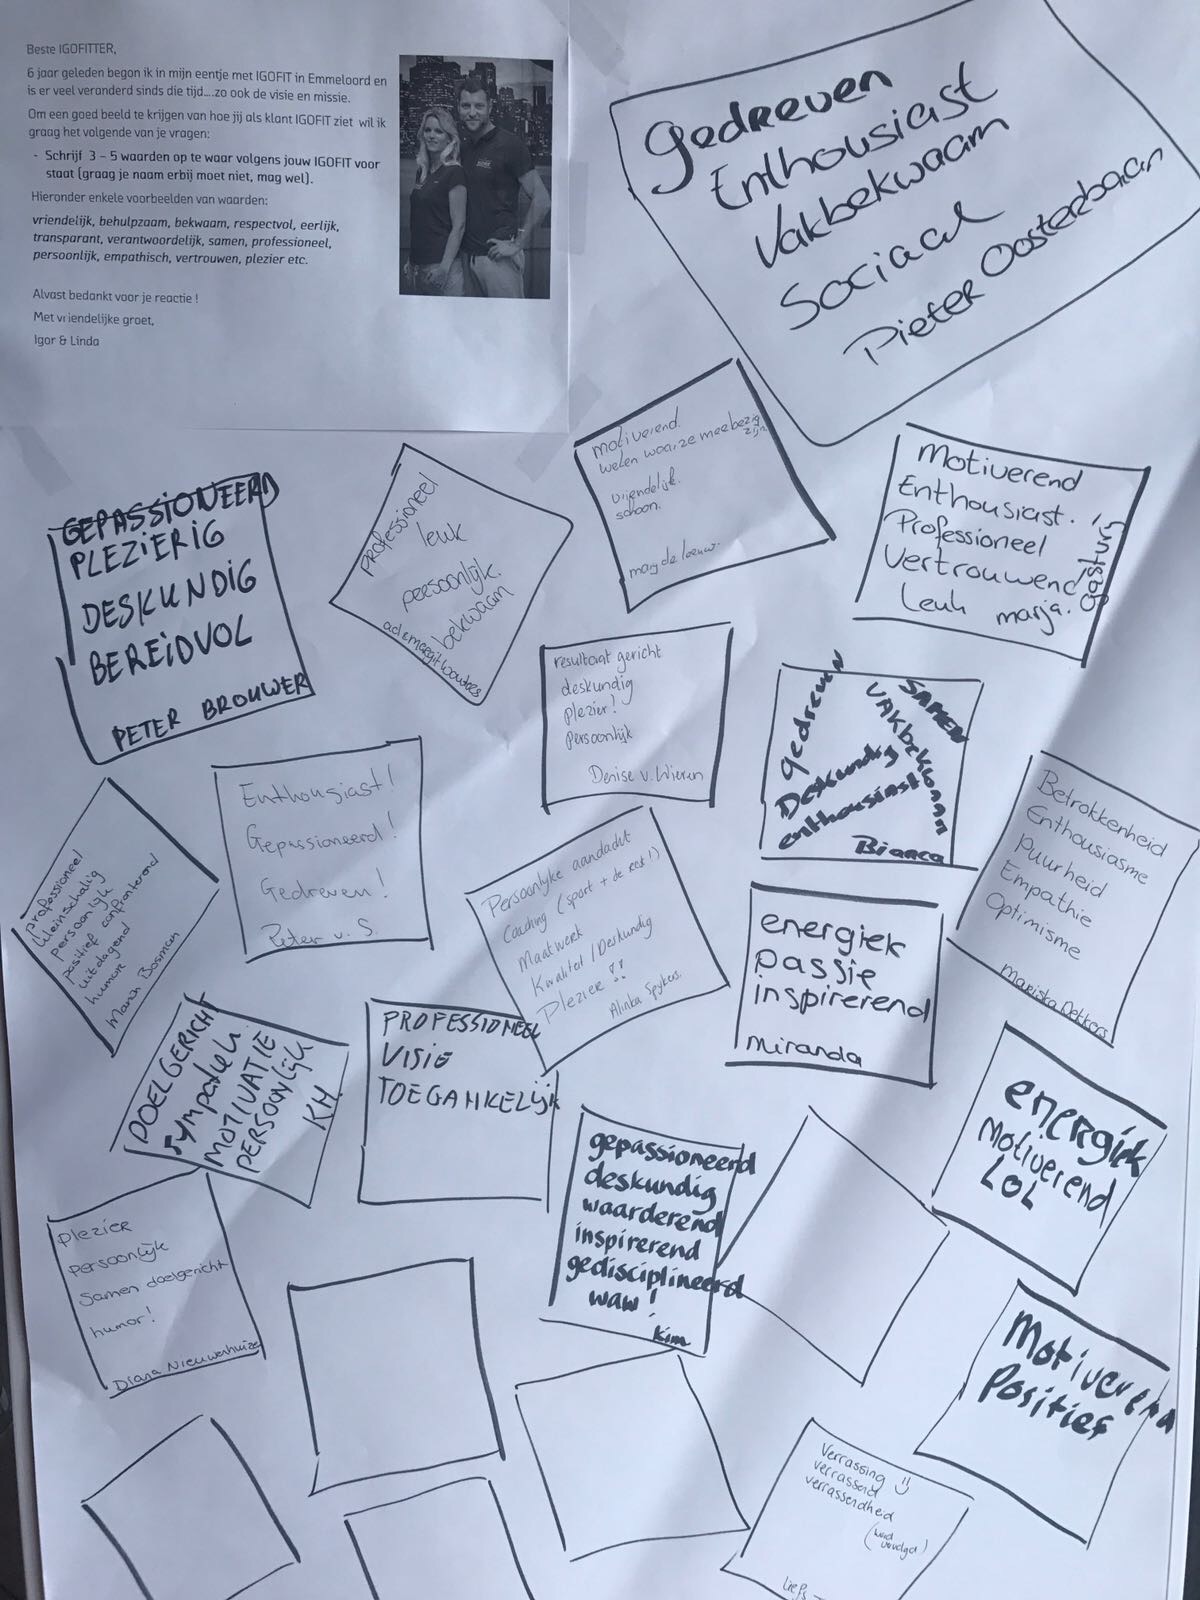 Beste IGOFITTER,
6 jaar geleden begon ik in mijn eentje met IGOFIT in Emmeloord en
is er veel veranderd sinds die tijd....zo ook de visie en missie.
Om een goed beeld te krijgen van hoe jij als klant IGOFIT ziet wil ik
graag het volgende van je vragen:
- Schrijf 3 – 5 waarden op te waar volgens jouw IGOFIT voor
staat (graag je naam erbij moet niet, mag wel).
Hieronder enkele voorbeelden van waarden:
vriendelijk, behulpzaam, bekwaam, respectvol, eerlijk,
transparant, verantwoordelijk, samen, professioneel,
persoonlijk, empathisch, vertrouwen, plezier etc.
Alvast bedankt voor je reactie !
Met vriendelijke groet,
Igor & Linda
gedreven
Enthousiast
Vakbekwaam
Sociaal
Pieter Oosterbaan
motiverend.
weten waar ze mee bezig
zijn
vriendelijk.
schoon.
marj de leeuw.
Motiverend
Enthousiast.
Professioneel
Vertrouwend
Leuk marja.
GEPASSIONEERD
PLEZIERIG
DESKUNDIG
BEREIDVOL
PETER BROUWER
professioneel
leuk
persoonlijk.
bekwaam
resultaat gericht
deskundig
plezier!
persoonlijk
Denise v. Wieren
gedreven
SAMEN
vakbekwaam
Deskundig
enthousiast
Bianca
Betrokkenheid
Enthousiasme
puurheid
Empathie
Optimisme
Mariska Dekkers
Enthousiast!
Gepassioneerd!
Gedreven!
Peter v. S.
professioneel
kleinschalig
persoonlijk
positief confronterend
uitdagend
humor
Manon Bosman
Persoonlijke aandacht
Coaching (sport + de rest!)
Maatwerk
Kwaliteit / Deskundig
Plezier!!
Alinka Spykers.
energiek
passie
inspirerend
Miranda
DOELGERICHT
sympathiek
MOTIVATIE
PERSOONLIJK
KH
PROFESSIONEEL
VISIE
TOEGANKELIJK
energiek
Motiverend
LOL
gepassioneerd
deskundig
waarderend
inspirerend
gedisciplineerd
waw!
Kim
plezier
persoonlijk
Samen doelgericht
humor!
Diana Nieuwenhuize
Motiverend
Positief
Verrassing
verrassend
verrassendheid
(word vervolgd)
Liefs